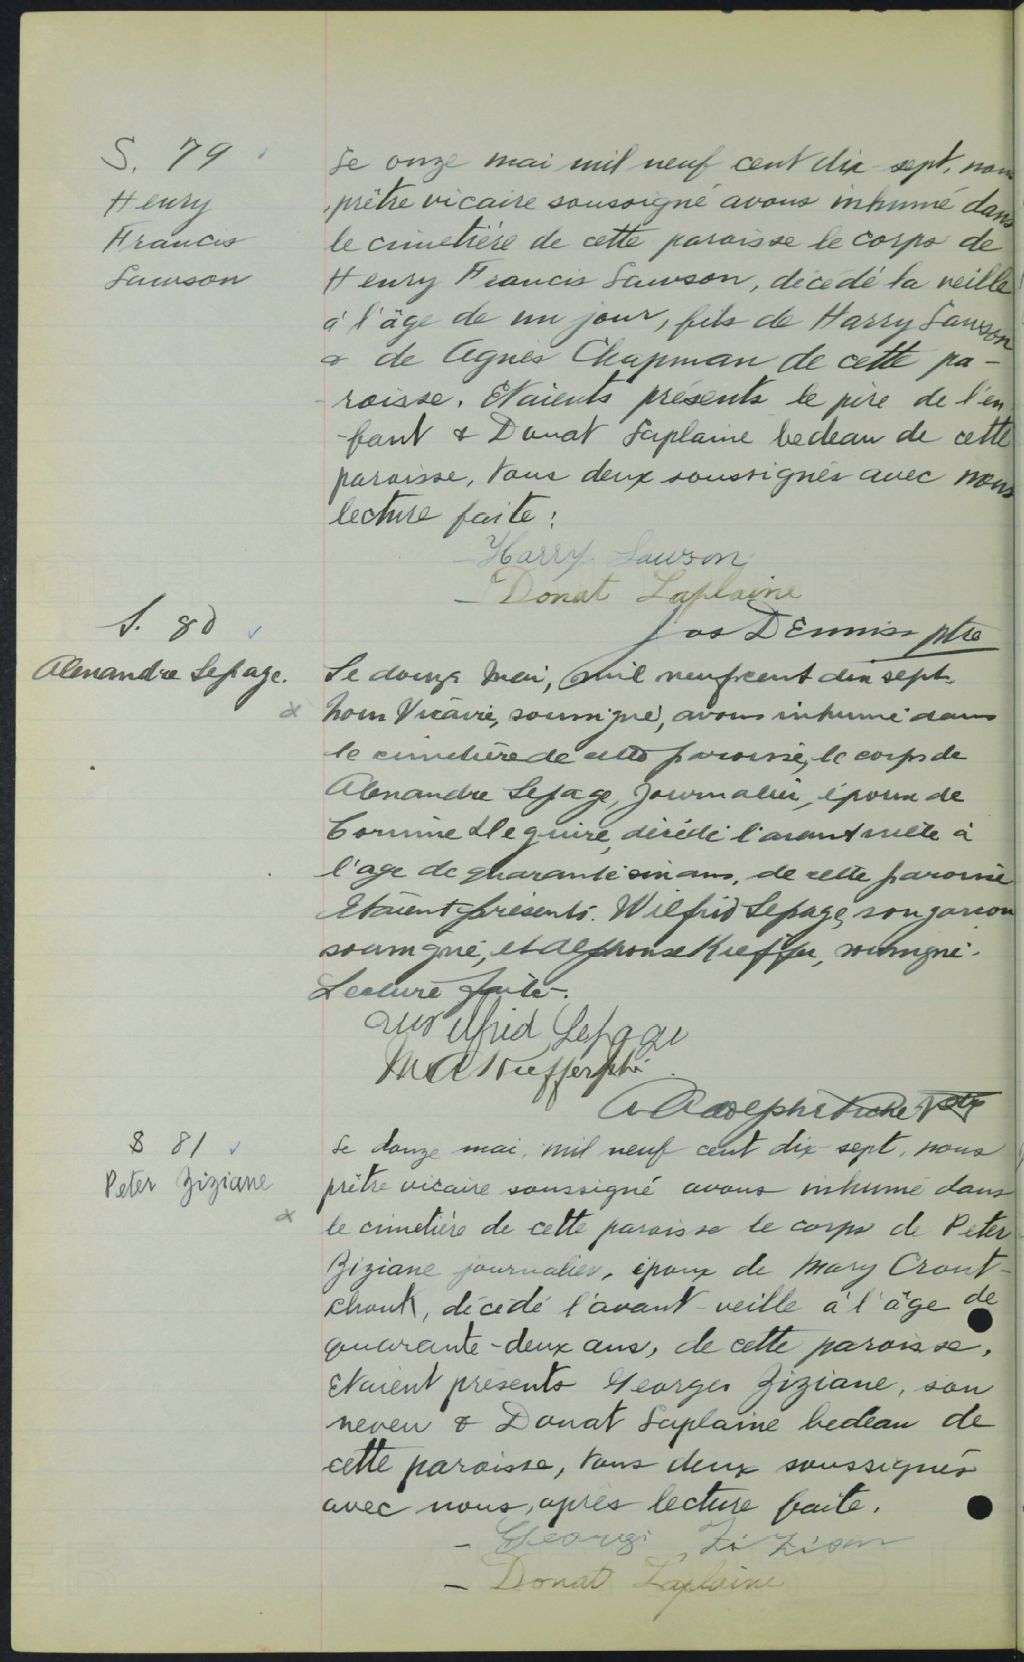 S. 79
Henry
Francis
Lawson
Le onze mai mil neuf cent dix-sept, nous
prêtre vicaire soussigné avons inhumé dans
le cimetière de cette paroisse le corps de
Henry Francis Lawson, décédé la veille
à l'âge de un jour, fils de Harry Lawson
& de Agnès Chapman de cette pa-
roisse. Etaients présents le père de l'en
-fant & Donat Laplaine bedeau de cette
paroisse, tous deux soussignés avec nous
lecture faite:
Harry Lawson
- Donat Laplaine
Jos DEnniss ptre
S. 80
Alexandre Lepage.
Le douze Mai, mil neuf cent dix sept
nous Vicaire, soussigné, avons inhumé dans
le cimetière de cette paroisse, le corps de
Alexandre Lepage, Journalier, époux de
Corinne Heguire, décédé l'avant veille à
l'age de quarante six ans, de cette paroisse
Etaient présents. Wilfrid Lepage, son garcon
soussigné, et Alphonse Kieffer, soussigné.
Lecture faite-.
Wilfrid Lepage
M A Kieffer
S 81
Peter Ziziane
Le douze mai, mil neuf cent dix sept, nous
prêtre vicaire soussigné avons inhumé dans
le cimetière de cette paroisse le corps de Peter
Ziziane journalier, époux de Mary Crout-
chouk, décédé l'avant-veille à l'âge de
quarante-deux ans, de cette paroisse.
Etaient présents Georges Ziziane, son
neveu & Donat Laplaine bedeau de
cette paroisse, tous deux soussignés
avec nous, après lecture faite.
- Georgi Zi Zian
- Donat Laplaine